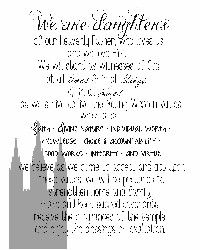 We are daughters
of our Heavenly Father, who loves us,
and we love Him.
We will stand as witnesses of God
at all times & in all things,
& in all places
as we strive to live the Young Women values,
which are:
Faith • Divine Nature • Individual Worth •
Knowledge • Choice & Accountability •
Good Works • Integrity • and Virtue
We believe as we come to accept and act upon
these values, we will be prepared to
strengthen home and family,
make and keep sacred covenants,
receive the ordinances of the temple,
and enjoy the blessings of exaltation.